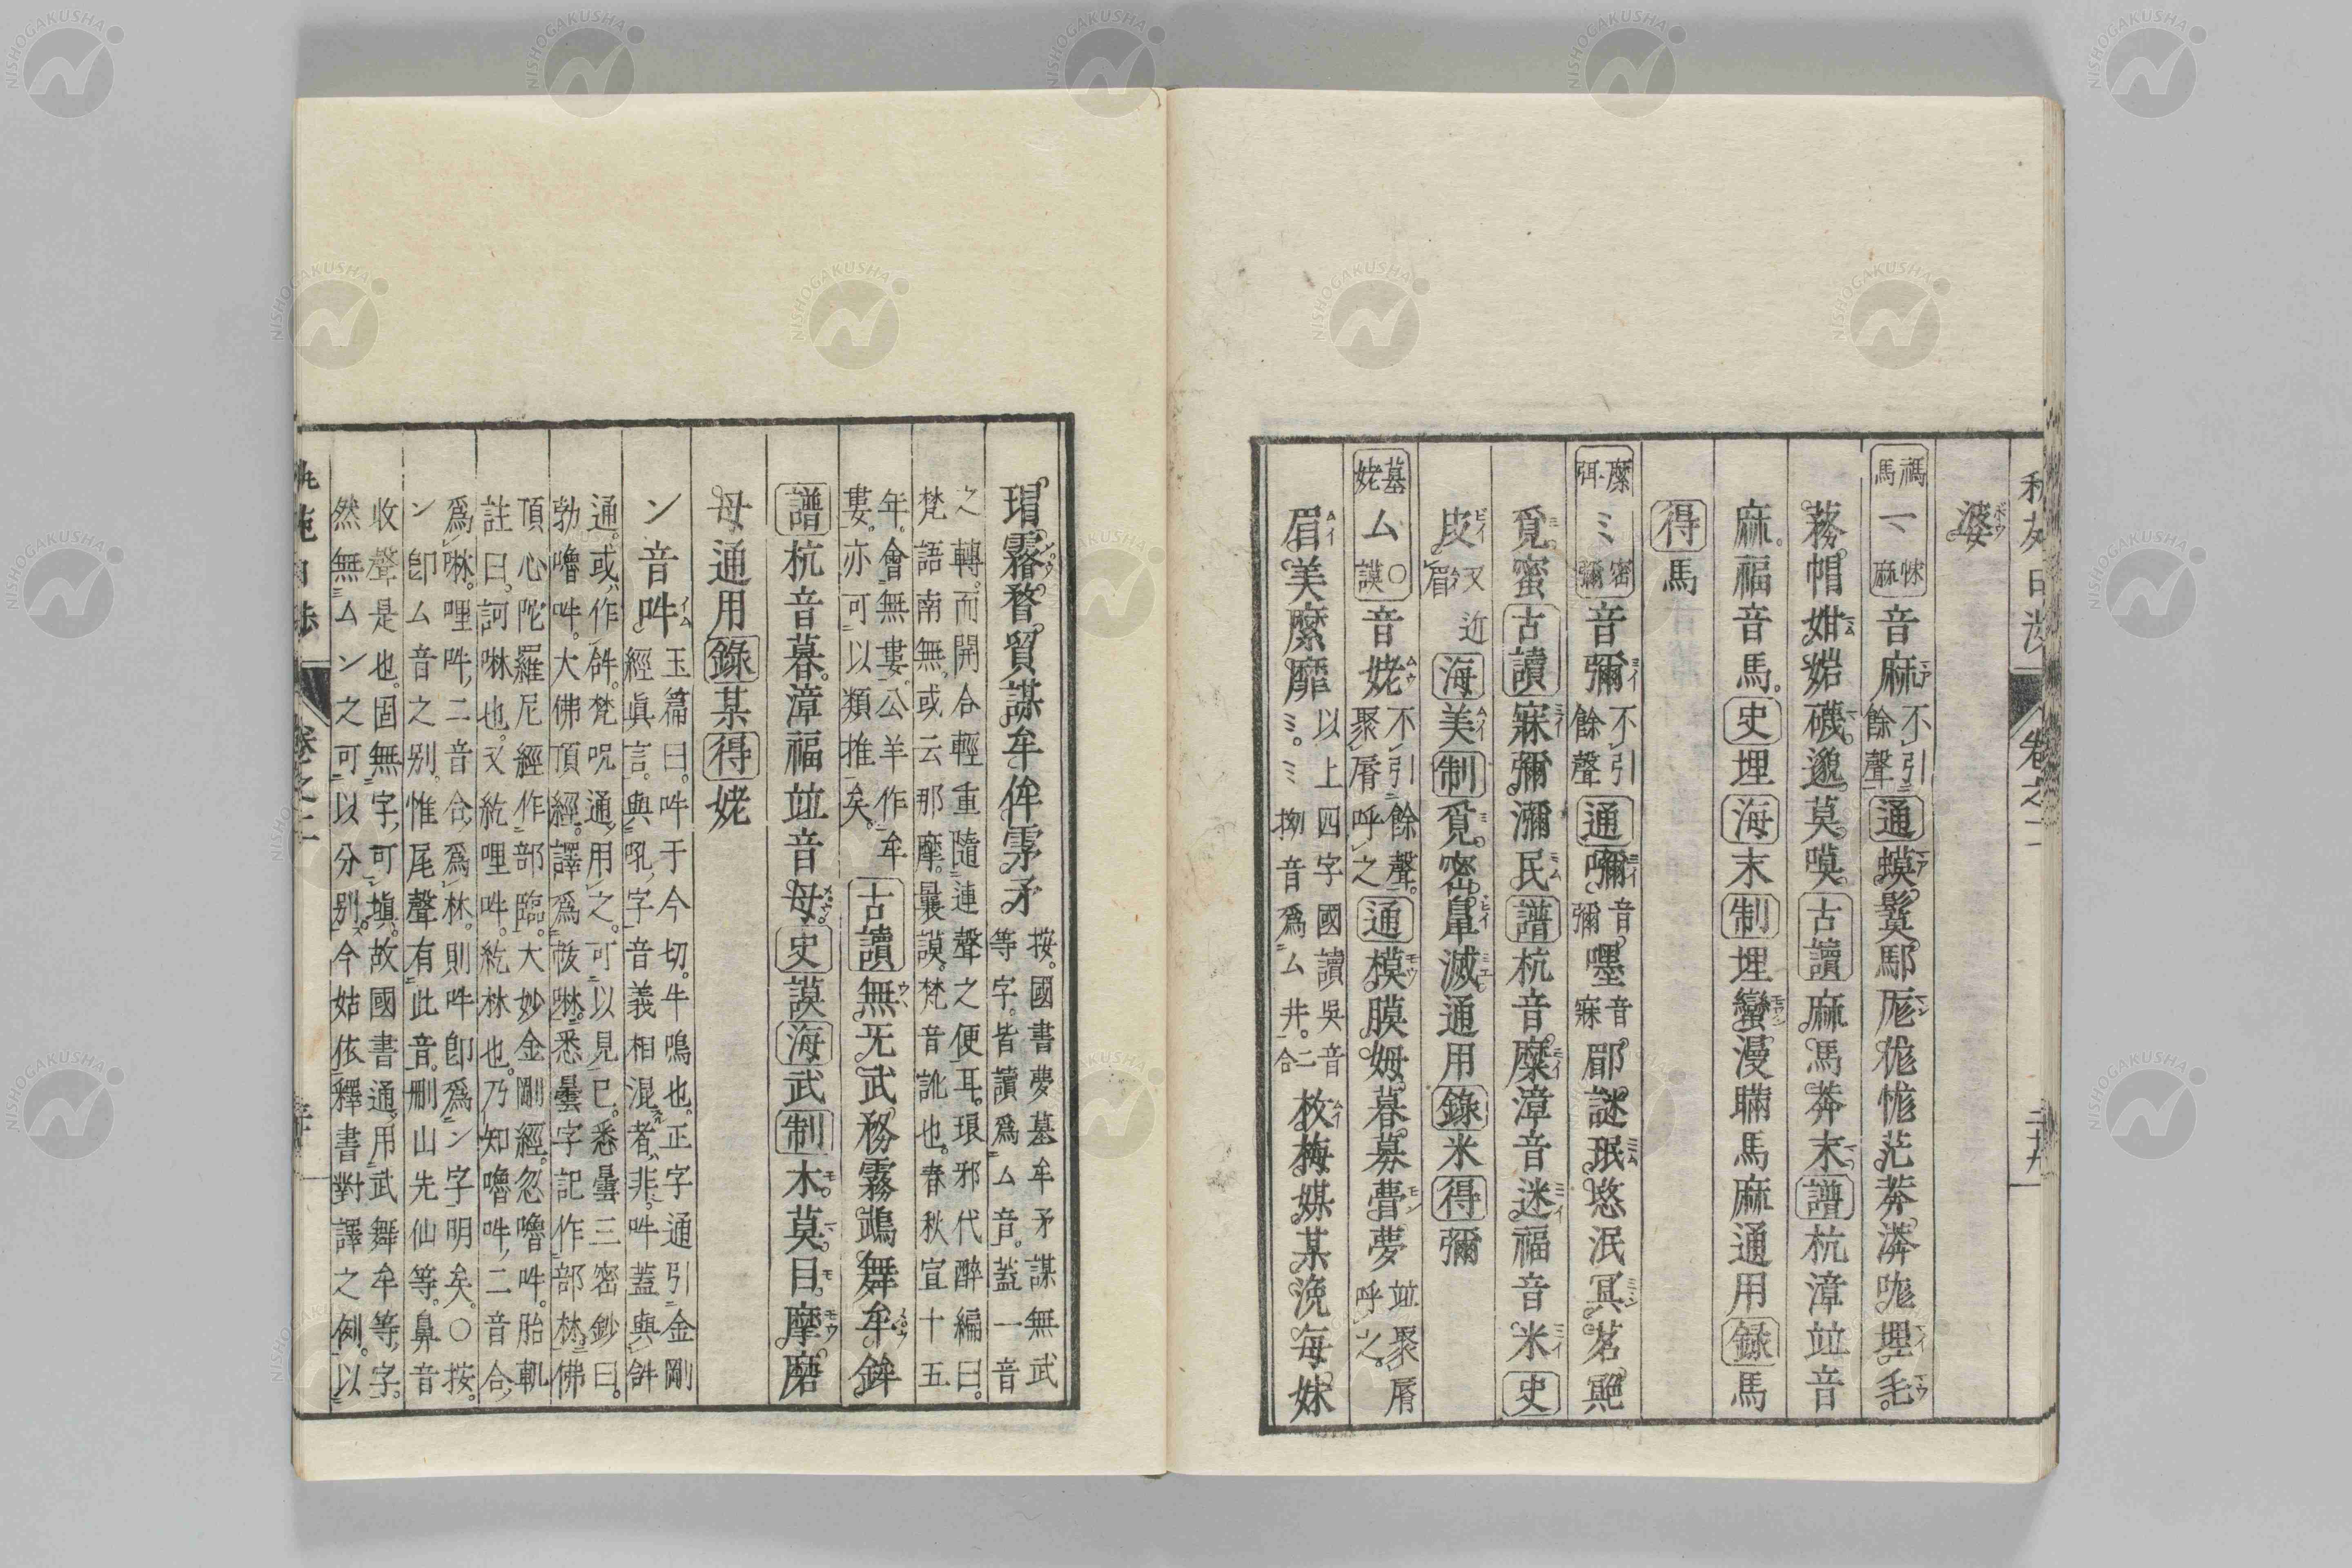 婆
禡馬マ㤥麻音麻不引餘聲通蟆鬘䣕厖狵㤶茫莽漭咙埋毛
蓩帽姏媌礣邈莫嗼古讀麻馬莽末譜杭漳竝音
麻福音馬史埋海末制埋蠻漫瞞馬麻通用録馬
得馬
縻弭ミ密彌音彌不引餘聲通嚩音彌嚜音寐郿謎珉愍泯冥茗
覓蜜古讀寐彌瀰民譜杭音縻漳音迷福音米史
皮又眉近海美制覓密鼻滅通用錄米得彌
墓姥ム〇謨音姥不引餘聲聚脣呼之通模膜姆暮募瞢夢竝聚脣呼之
眉美縻靡以上四字國讀吳音ミミ拗音爲ム井二合枚梅媒某浼每妹
瑁霧瞀貿謀牟侔雺矛按國書夢墓牟矛謀無武等字皆讀爲ム音蓋一音
之轉而開合輕重隨連聲之便耳琅邪代醉編曰
梵語南無或云那摩曩謨梵音訛也春秋宣十五
年會無婁公羊作牟婁亦可以類推矣古讀無无武務霧鵡舞牟鉾
譜杭音暮漳福竝音母史謨海武制木莫目摩磨
母通用錄某得姥
ン音吽玉篇曰吽于今切牛鳴也正字通引金剛
經眞言與吼字音義相混者非吽蓋與𤙖
通或作𤙖梵呪通用之可以見已悉曇三密鈔曰
勃嚕吽大佛頂經譯爲㧊啉悉曇字記作部林佛
頂心陀羅尼經作部臨大妙金剛經忽嚕吽胎軌
註曰訶啉也又紇哩吽紇林也乃知嚕吽二音合
爲啉哩吽二音合爲林則吽卽爲ン字明矣〇按
ン卽ム音之別惟尾聲有此音删山先仙等鼻音
收聲是也固無字可塡故國書通用武舞牟等字
然無ムン之可以分別今姑依釋書對譯之例以